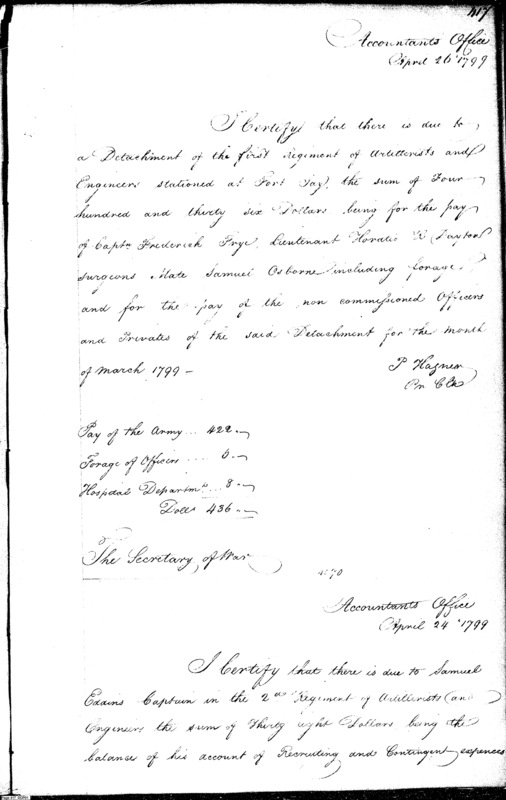 417
Accountants Office
April 26th 1799
I Certify that there is due to
a Detachment of the first Regiment of Artillerists and
Engineers stationed at Fort Jay, the sum of Four
hundred and thirty six Dollars being for the pay
of Captn Frederick Frye, Lieutenant Horatio R Dayton
surgeons Mate Samuel Osborne including forage,
and for the pay of the non commissioned Officers
and Privates of the said Detachment for the month
of March 1799 –
P Hagner
Pn Clk
Pay of the Army ... 422.–
Forage of Officers .... 6.–
Hospital Departmt ... 8.–
Dolls 436.–
The Secretary of War
Accountants Office
April 24th 1799
I Certify that there is due to Samuel
Eakins Captain in the 2nd Regiment of Artillerists and
Engineers the sum of Thirty eight Dollars being the
balance of his account of Recruiting and Contingent expences